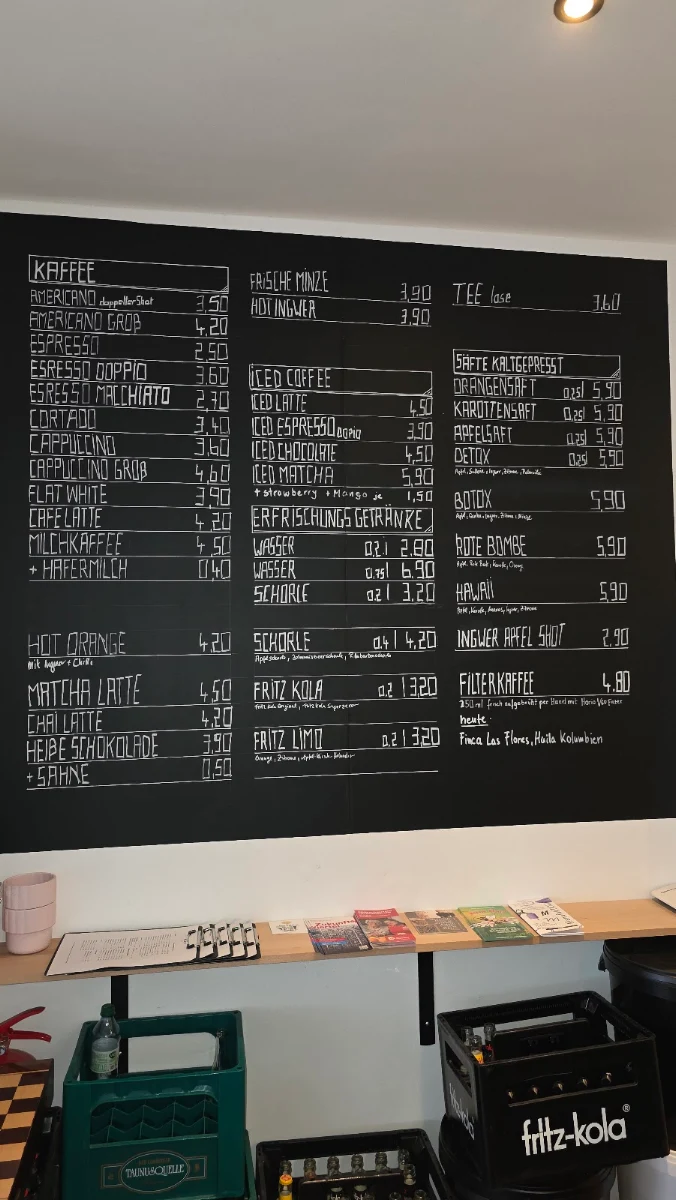 KAFFEE
AMERICANO doppelter Shot 3,50
AMERICANO GROß 4,20
ESPRESSO 2,50
ESRESSO DOPPIO 3,60
ESRESSO MACCHIATO 2,70
CORTADO 3,40
CAPPUCCINO 3,60
CAPPUCCINO GROß 4,60
FLAT WHITE 3,90
CAFE LATTE 4,20
MILCHKAFFEE 4,50
+ HAFERMILCH 0,40
HOT ORANGE 4,20
Mit Ingwer + Chilli
MATCHA LATTE 4,50
CHAI LATTE 4,20
HEIßE SCHOKOLADE 3,90
+ SAHNE 0,50
FRISCHE MINZE 3,90
HOT INGWER 3,90
ICED COFFEE
ICED LATTE 4,50
ICED ESPRESSO DOPIO 3,90
ICED CHOCOLATE 4,50
ICED MATCHA 5,90
+ strawberry + Mango je 1,50
ERFRISCHUNGSGETRÄNKE
WASSER 0,2 l 2,80
WASSER 0,75 l 6,90
SCHORLE 0,2 l 3,20
SCHORLE 0,4 l 4,20
FRITZ KOLA 0,2 l 3,20
FRITZ LIMO 0,2 l 3,20
TEE lose 3,60
SÄFTE KALTGEPRESST
ORANGENSAFT 0,25l 5,90
KAROTTENSAFT 0,25l 5,90
APFELSAFT 0,25l 5,90
DETOX 0,25l 5,90
BOTOX 5,90
ROTE BOMBE 5,90
HAWAII 5,90
INGWER APFEL SHOT 2,90
FILTERKAFFEE 4,80
250 ml frisch aufgebrüht per Hand mit Hario V60 Filter
heute:
Finca Las Flores, Huila Kolumbien
TAUNUSQUELLE
fritz-kola®